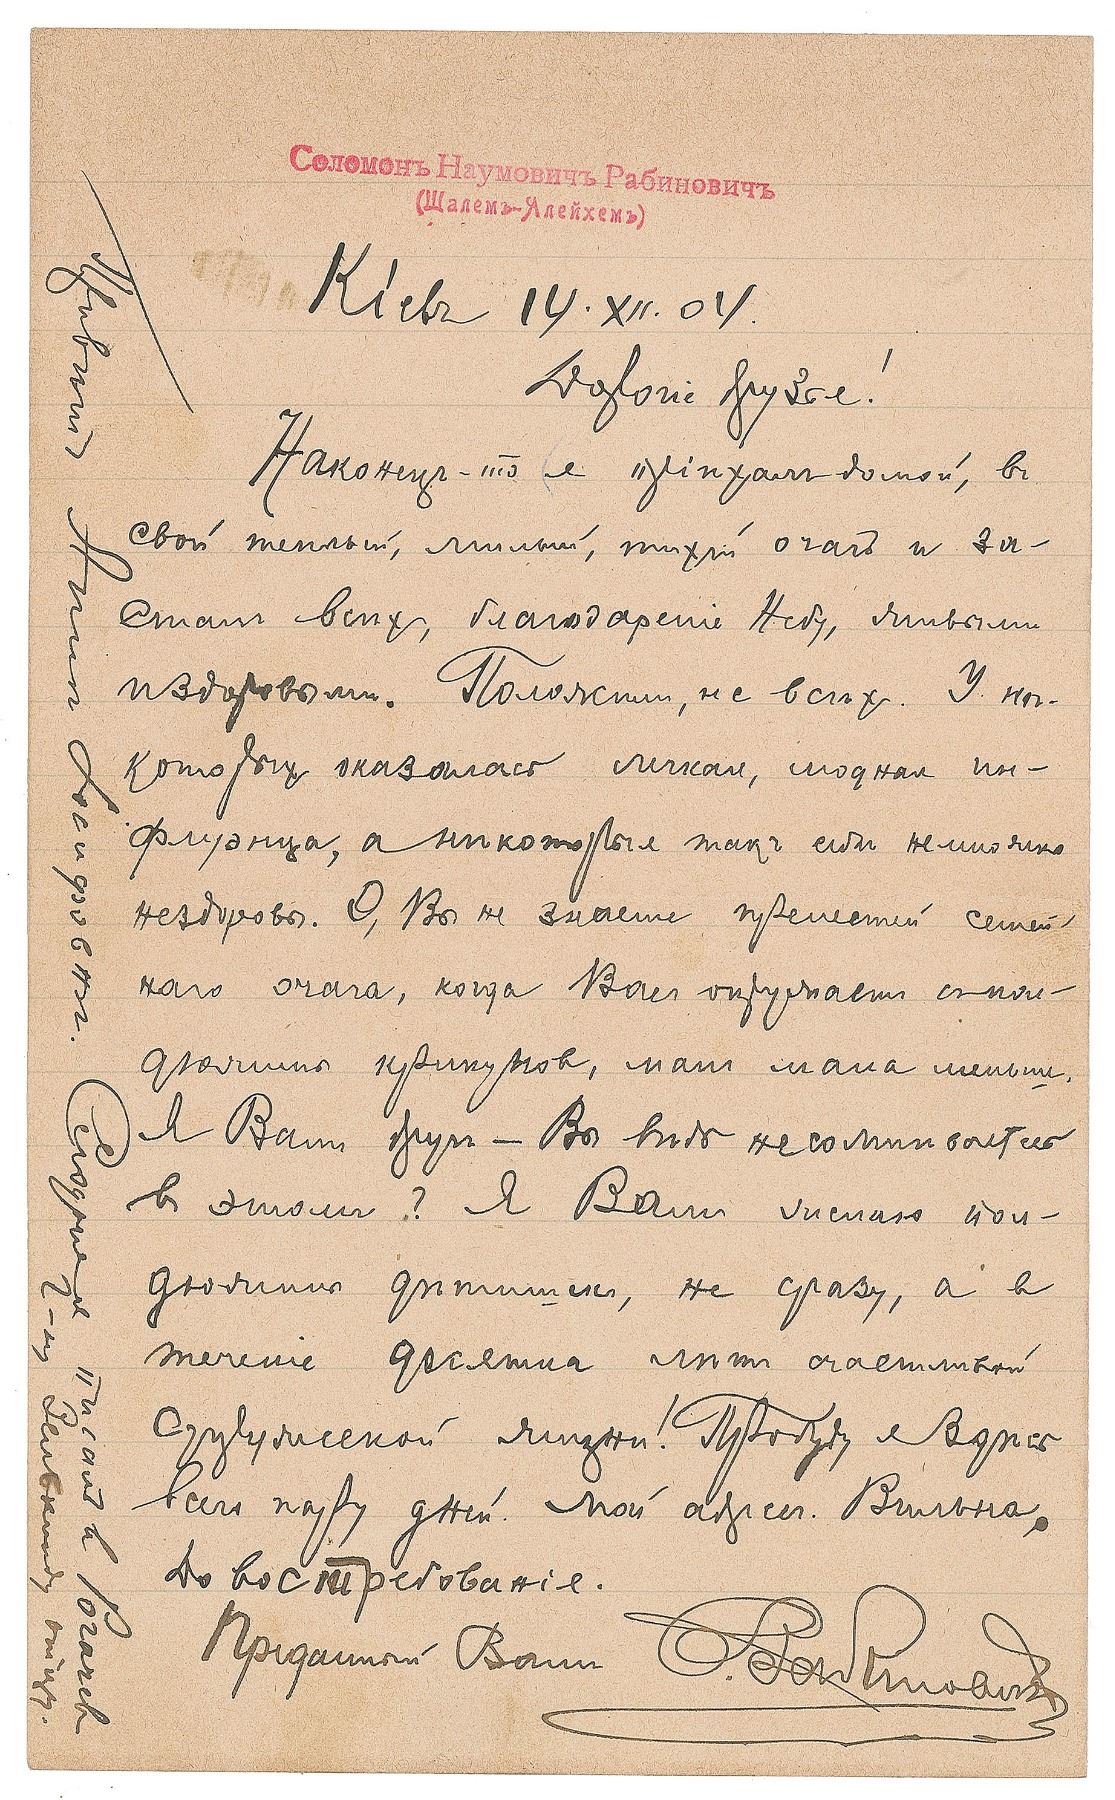 Соломонъ Наумовичъ Рабиновичъ
(Шалемъ-Алейхемъ)
Кіевъ 14. XII. 04.
Дорогіе друзья!
Наконецъ-то я пріѣхалъ домой, въ
свой теплый, милый, тихій очагъ и за-
сталъ всѣхъ, благодареніе Небу, живыми
и здоровыми. Положимъ, не всѣхъ. У нѣ-
которыхъ оказалась легкая, модная ин-
флуэнца, а нѣкоторые такъ себѣ немножко
нездоровы. О, Вы не знаете прелестей семей-
наго очага, когда Васъ окружаетъ с пол-
дюжины крикуновъ, малъ мала меньше.
Я Вамъ другъ — Вы вѣдь не сомнѣваетесь
въ этомъ? Я Вамъ желаю пол-
дюжины дѣтишекъ, не сразу, а въ
теченіе десятка лѣтъ счастливой
супружеской жизни! Пробуду я здѣсь
всего пару дней. Мой адресъ. Вильна,
До востребованія.
Преданный Вамъ С. Рабиновичъ
Привѣтъ Аннѣ Іосифовнѣ. Сегодня писалъ в Рогачевъ
г-ну отцу.